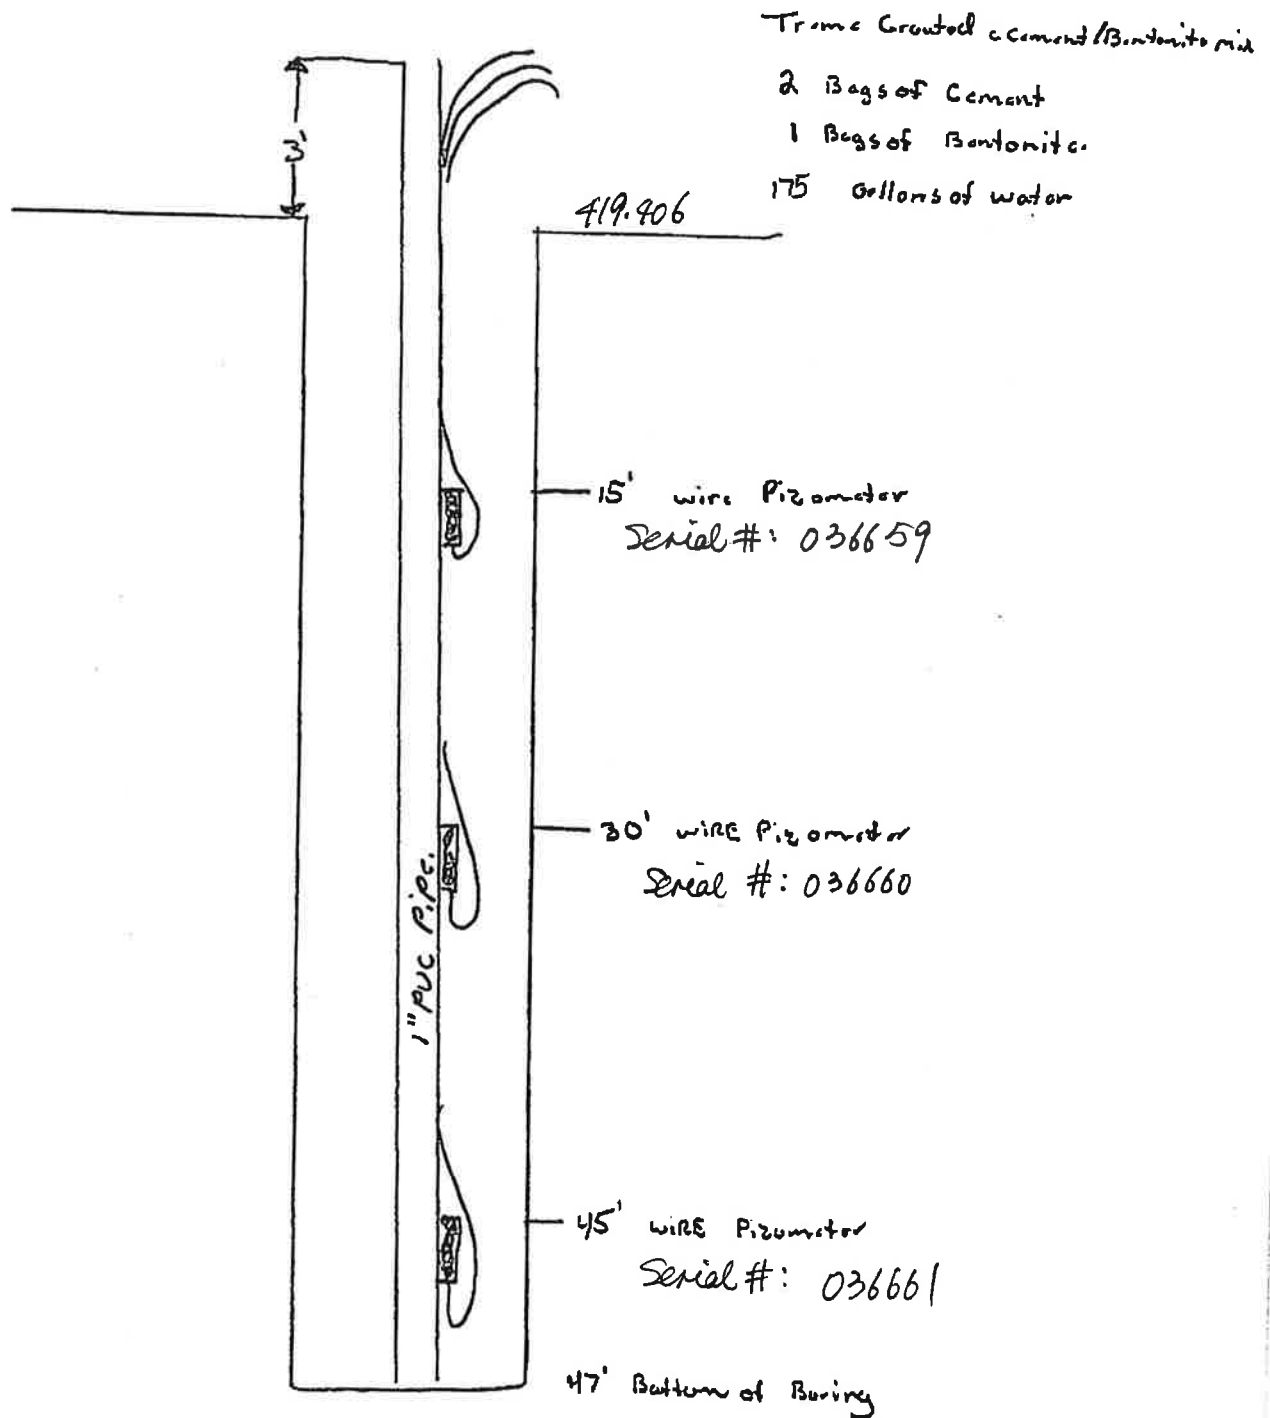 Treme Grouted c Cement/Bentonite mix
2 Bags of Cement
1 Bags of Bentonite
175 Gallons of water
3'
419.406
15' wire Pizometer
Serial #: 036659
30' wiRE Pizometer
Serial #: 036660
1" PVC Pipe
45' wiRE Pizometer
Serial #: 036661
47' Bottom of Boring